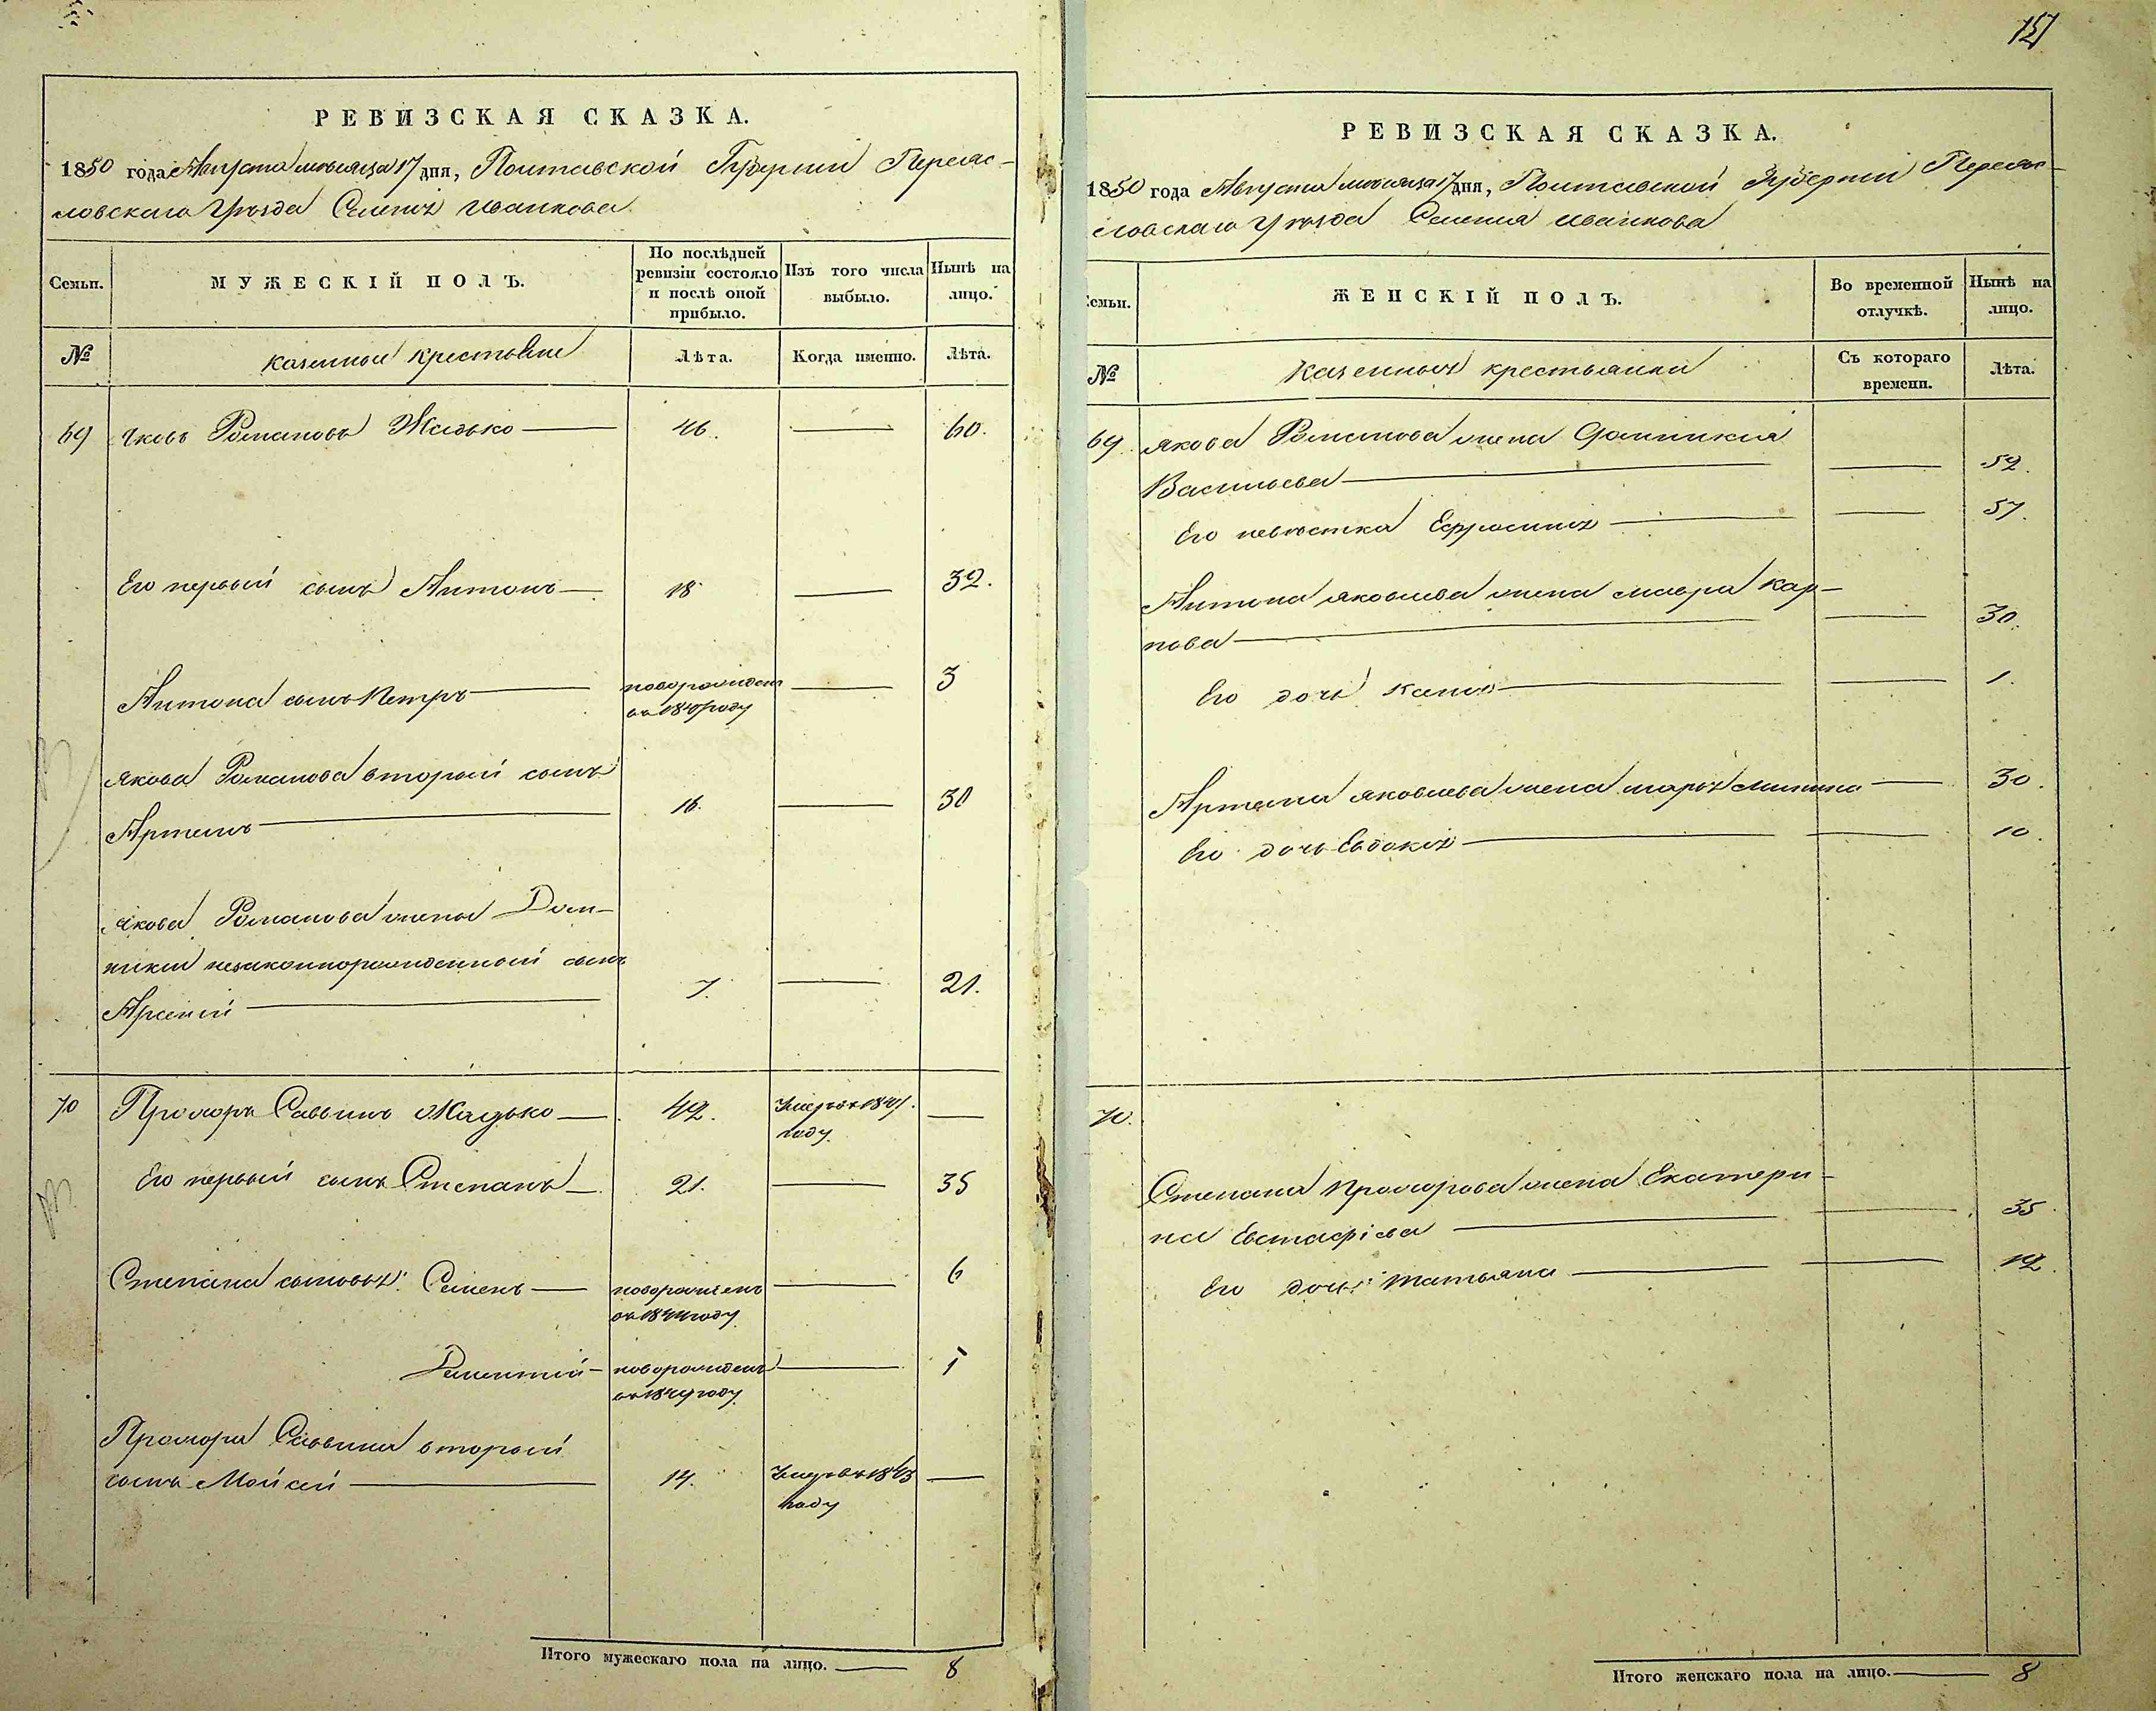 РЕВИЗСКАЯ СКАЗКА.
1850 года Августа мѣсяца 17 дня, Полтавской Губерніи Переяс-
ловскаго Уѣзда Селенія Иванкова
Семьи.
МУЖЕСКІЙ ПОЛЪ.
По послѣдней ревизіи состояло и послѣ оной прибыло.
Изъ того числа выбыло.
Нынѣ на лицо.
№
казенные крестьяне
Лѣта.
Когда именно.
Лѣта.
69 Яковъ Романовъ Жадько — 46. — 60.
Его первый сынъ Антонъ — 18 — 32.
Антона сынъ Петръ — новорожден — 3
въ 1847 году
Якова Романова второй сынъ
Артемъ — 16. — 30
Якова Романова жены Дом-
никіи незаконнорожденный сынъ
Арсеній — 7. — 21.
70 Прохоръ Саввинъ Жадько — 42. Умеръ въ 1847. —
году.
Его первый сынъ Степанъ — 21. — 35
Степана сыновья: Семенъ — новорожденъ — 6
въ 1844 году
Дементій — новорожденъ — 1
въ 1849 году.
Прохора Саввина второй
сынъ Мойсей — 14. Умеръ въ 1843 —
году
Итого мужескаго пола на лицо. — 8
151
РЕВИЗСКАЯ СКАЗКА.
1850 года Августа мѣсяца 17 дня, Полтавской Губерніи Переяс-
ловскаго Уѣзда Селенія Иванкова
Семьи.
ЖЕНСКІЙ ПОЛЪ.
Во временной отлучкѣ.
Нынѣ на лицо.
№
казенныя крестьянки
Съ котораго времени.
Лѣта.
69. Якова Романова жена Домникія
Васильева — — 52.
Его невѣстка Ефросинія — — 57.
Антона Яковлева жена Мавра Кар-
пова — — 30.
Его дочь — — 1.
Артема Яковлева жена Марья Минина — 30.
Его дочь Евдокія — — 10.
70.
Степана Прохорова жена Екатери-
на Евстафіева — — 35.
Его дочь: Татьяна — — 12.
Итого женскаго пола на лицо. — 8